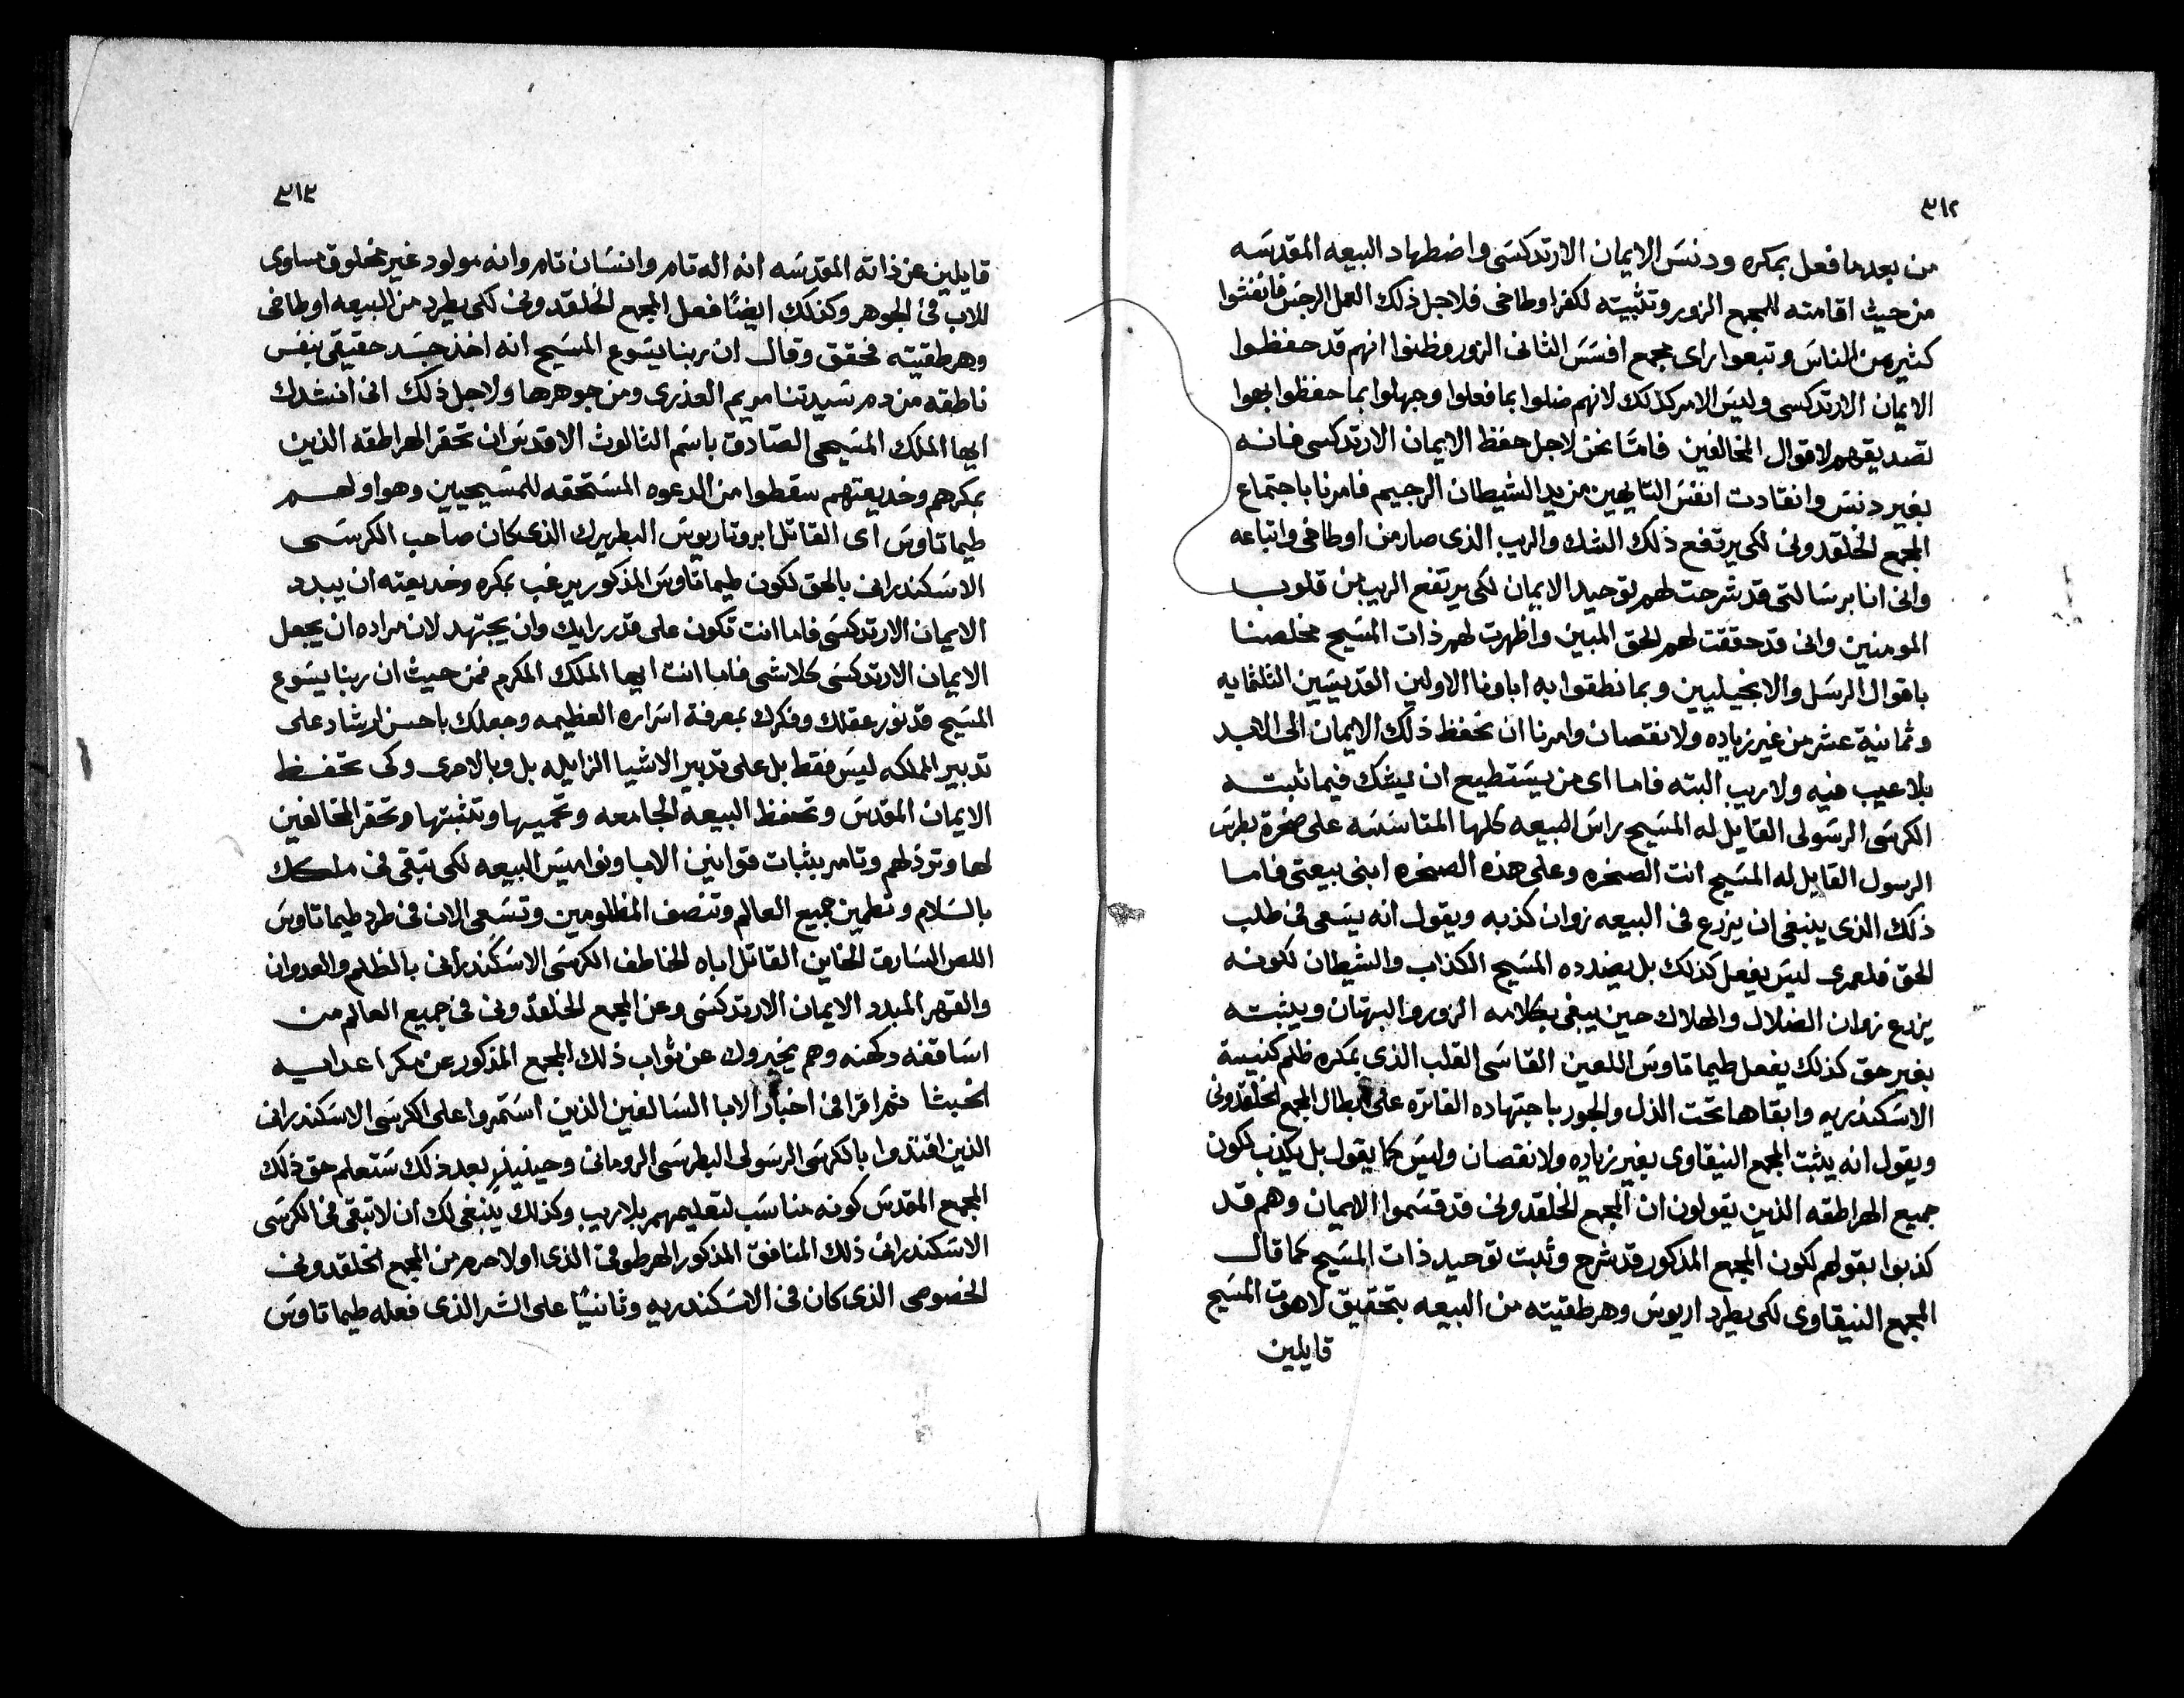 ٣١٢
من بعد ما فعل بمكره ودنس الايمان الارتدكسى واضطهاد البيعه المقدسه
من حيث اقامته للمجمع الزور وتثبيته لكفر اوطاخى فلاجل ذلك العمل الرجس فانغشوا
كثير من الناس وتبعوا راى مجمع افسس الثانى الزور وظنوا انهم قد حفظوا
الايمان الارتدكسى وليس الامر كذلك لانهم ضلوا بما فعلوا وجهلوا بما حفظوا بهوا
تصديقهم لاقوال المخالفين فامّا نحن لاجل حفظ الايمان الارتدكسى فانه
بغير دنس وانقادت انفس التايهين من يد الشيطان الرجيم فامرنا باجتماع
المجمع الخلقدونى لكى يرتفع ذلك الشك والريب الذى صار من اوطاخى واتباعه
وانى انا برسالتى قد شرحت لهم توحيد الايمان لكى يرتفع الريب من قلوب
المومنين وانى قد حققت لهم الحق المبين واظهرت لهم ذات المسيح مخلصنا
باقوال الرسل والانجيليين وبما نطقوا به اباونا الاولين القديسين الثلثمايه
وثمانية عشر من غير زياده ولا نقصان وامرنا ان تحفظ ذلك الايمان الى الابد
بلا عيب فيه ولا ريب البته فاما اى من يستطيع ان يشك فيما ثبته
الكرسى الرسولى القايل له المسيح راس البيعه كلها المتاسسه على صخرة بطرس
الرسول القايل له المسيح انت الصخره وعلى هذه الصخره ابنى بيعتى فاما
ذلك الذى ينبغى ان يزرع فى البيعه زوان كذبه ويقول انه يسعى فى طلب
الحق فلعمرى ليس يفعل كذلك بل يضدده المسيح الكذاب والشيطان لكونه
يزرع زوان الضلال والهلاك حين يبغى بكلامه الزور والبهتان ويثبته
بغير حق كذلك يفعل طيماتاوس اللعين القاسى القلب الذى بمكره ظلم كنيسة
الاسكندريه وابقاها تحت الذل والجور باجتهاده الفاتره على ابطال المجمع الخلقدونى
ويقول انه يثبت المجمع النيقاوى بغير زياده ولا نقصان وليس كما يقول بل يكذب لكون
جميع الهراطقه الذين يقولون ان المجمع الخلقدونى قد قسموا الايمان وهم قد
كذبوا بقولهم لكون المجمع المذكور قد شرح وثبت توحيد ذات المسيح كما قال
المجمع النيقاوى لكى يطرد اريوس وهرطقيته من البيعه بتحقيق لاهوت المسيح
قايلين
٣١٣
قايلين عن ذاته المقدسه انه اله تام وانسان تام وانه مولود غير مخلوق مساوى
للاب فى الجوهر وكذلك ايضًا فعل المجمع الخلقدونى لكى يطرد من البيعه اوطاخى
وهرطقيته فحقق وقال ان ربنا يسوع المسيح انه اخذ جسد حقيقى بنفس
ناطقه من دم سيدتنا مريم العذرى ومن جوهرها ولاجل ذلك انى انشدك
ايها الملك المسيحى الصّادق باسم الثالوث الاقدس ان تحقر الهراطقه الذين
بمكرهم وخديعتهم سقطوا من الدعوه المستحقه للمسيحيين وهو اولهم
طيماتاوس اى القاتل ابروتاريوس البطريرك الذى كان صاحب الكرسى
الاسكندرانى بالحق لكون طيماتاوس المذكور يرغب بمكره وخديعته ان يبدد
الايمان الارتدكسى فاما انت تكون على قدر رايك وان يجتهد لان مراده ان يجعل
الايمان الارتدكسى كلاشى فاما انت ايها الملك المكرم فمن حيث ان ربنا يسوع
المسيح قد نور عقلك وفكرك بمعرفة اسراره العظيمه وجعلك باحسن ارشاد على
تدبير المملكه ليس فقط بل على تدبير الاشيا الزايله بل وبالاحرى وكى تحفظ
الايمان المقدس وتحفظ البيعه الجامعه وتحميها وتثبتها وتحقر المخالفين
لها وترذلهم وتامر بثبات قوانين الابا ونواميس البيعه لكى تبقى فى ملكك
بالسلام وتطمين جميع العالم وتنصف المظلومين وتسعى الان فى طرد طيماتاوس
اللص السارق الخاين القاتل اباه الخاطف الكرسى الاسكندرانى بالظلم والعدوان
والقهر المبدد الايمان الارتدكسى وعن المجمع الخلقدونى فى جميع العالم من
اساقفه وكهنه وهم يخبروك عن ثواب ذلك المجمع المذكور عن مكر اعدايه
الخبثا ثم اقرا فى اخبار الابا السالفين الذين استمروا على الكرسى الاسكندرانى
الذين اقتدوا بالكرسى الرسولى البطرسى الرومانى وحينيذٍ بعد ذلك ستعلم حق ذلك
المجمع المقدس كونه مناسب لتعليمهم بلا ريب وكذلك ينبغى لك ان لا تبقى فى الكرسى
الاسكندرانى ذلك المنافق المذكور الهرطوقى الذى اولا حرم من المجمع الخلقدونى
الخصوصى الذى كان فى الاسكندريه وثانيًا على الشر الذى فعله طيماتاوس